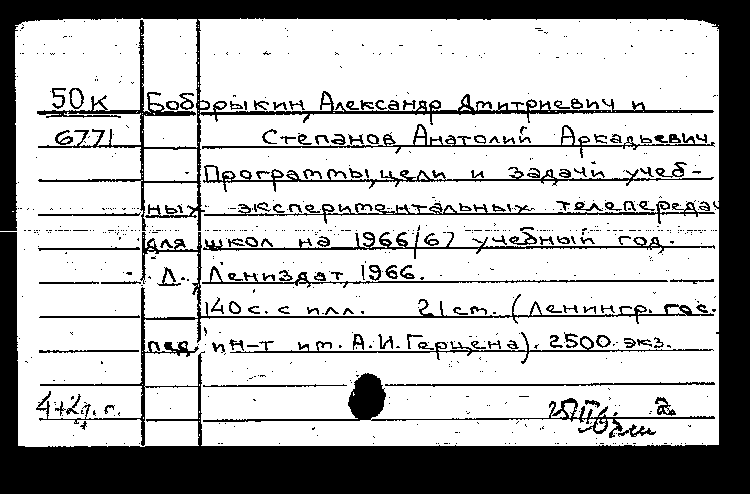 50к Боборыкин, Александр Дмитриевич и
6771 Степанов, Анатолий Аркадьевич.
Программы, цели и задачи учеб-
ных экспериментальных телепередач
для школ на 1966/67 учебный год.
Л., Лениздат, 1966.
140 с. с илл. 21 см. (Ленингр. гос.
пед. ин-т им. А.И. Герцена). 2500 экз.